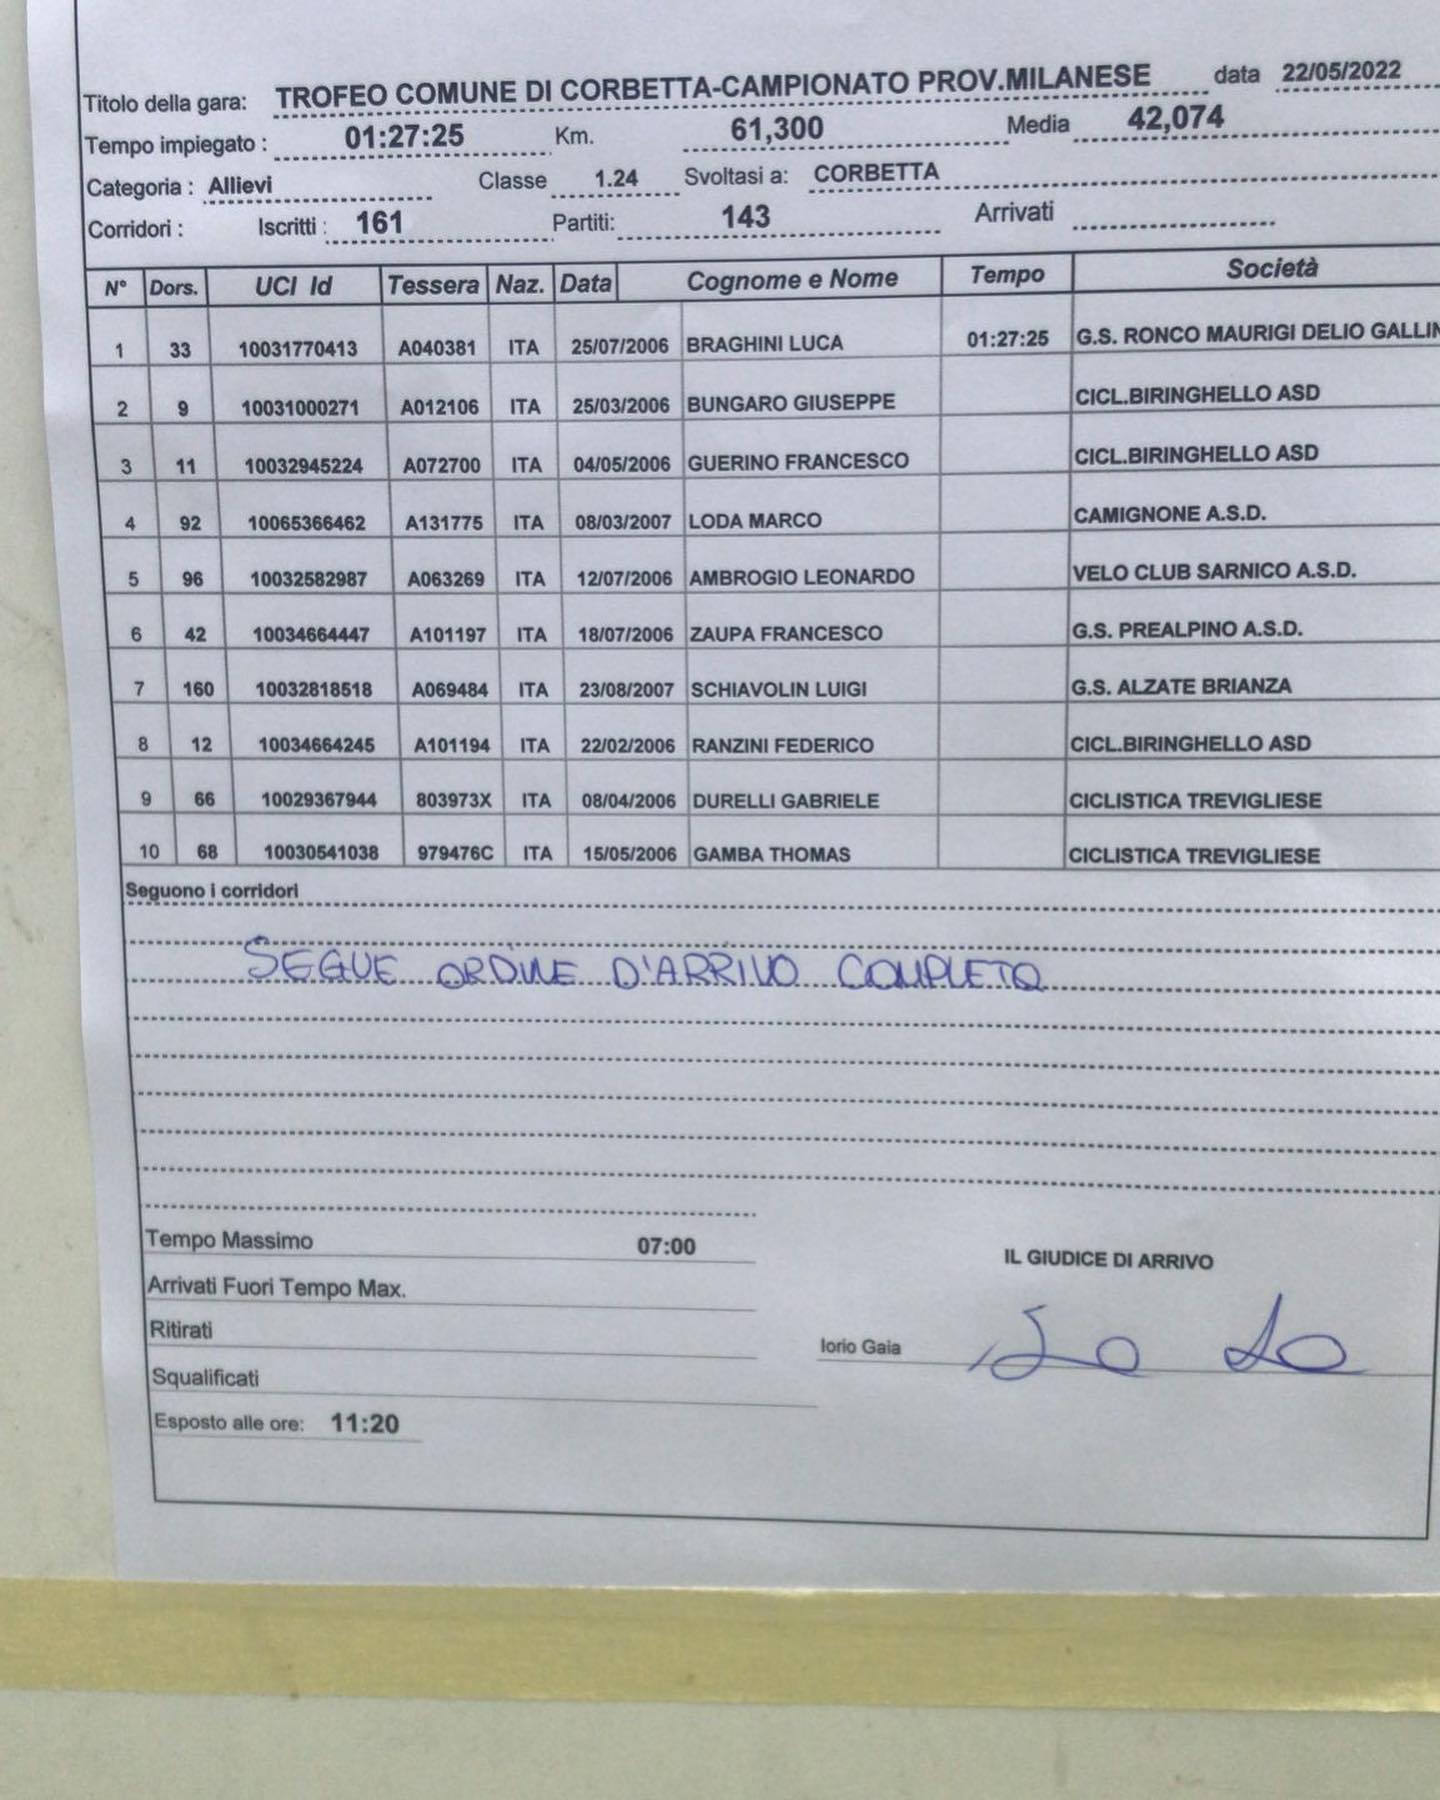 Titolo della gara: TROFEO COMUNE DI CORBETTA-CAMPIONATO PROV.MILANESE data 22/05/2022
Tempo impiegato : 01:27:25 Km. 61,300 Media 42,074
Categoria : Allievi Classe 1.24 Svoltasi a: CORBETTA
Corridori : Iscritti : 161 Partiti: 143 Arrivati
N° Dors. UCI Id Tessera Naz. Data Cognome e Nome Tempo Società
1 33 10031770413 A040381 ITA 25/07/2006 BRAGHINI LUCA 01:27:25 G.S. RONCO MAURIGI DELIO GALLIN
2 9 10031000271 A012106 ITA 25/03/2006 BUNGARO GIUSEPPE CICL.BIRINGHELLO ASD
3 11 10032945224 A072700 ITA 04/05/2006 GUERINO FRANCESCO CICL.BIRINGHELLO ASD
4 92 10065366462 A131775 ITA 08/03/2007 LODA MARCO CAMIGNONE A.S.D.
5 96 10032582987 A063269 ITA 12/07/2006 AMBROGIO LEONARDO VELO CLUB SARNICO A.S.D.
6 42 10034664447 A101197 ITA 18/07/2006 ZAUPA FRANCESCO G.S. PREALPINO A.S.D.
7 160 10032818518 A069484 ITA 23/08/2007 SCHIAVOLIN LUIGI G.S. ALZATE BRIANZA
8 12 10034664245 A101194 ITA 22/02/2006 RANZINI FEDERICO CICL.BIRINGHELLO ASD
9 66 10029367944 803973X ITA 08/04/2006 DURELLI GABRIELE CICLISTICA TREVIGLIESE
10 68 10030541038 979476C ITA 15/05/2006 GAMBA THOMAS CICLISTICA TREVIGLIESE
Seguono i corridori
SEGUE ORDINE D'ARRIVO COMPLETO
Tempo Massimo 07:00
IL GIUDICE DI ARRIVO
Arrivati Fuori Tempo Max.
Ritirati
Iorio Gaia
Squalificati
Esposto alle ore: 11:20